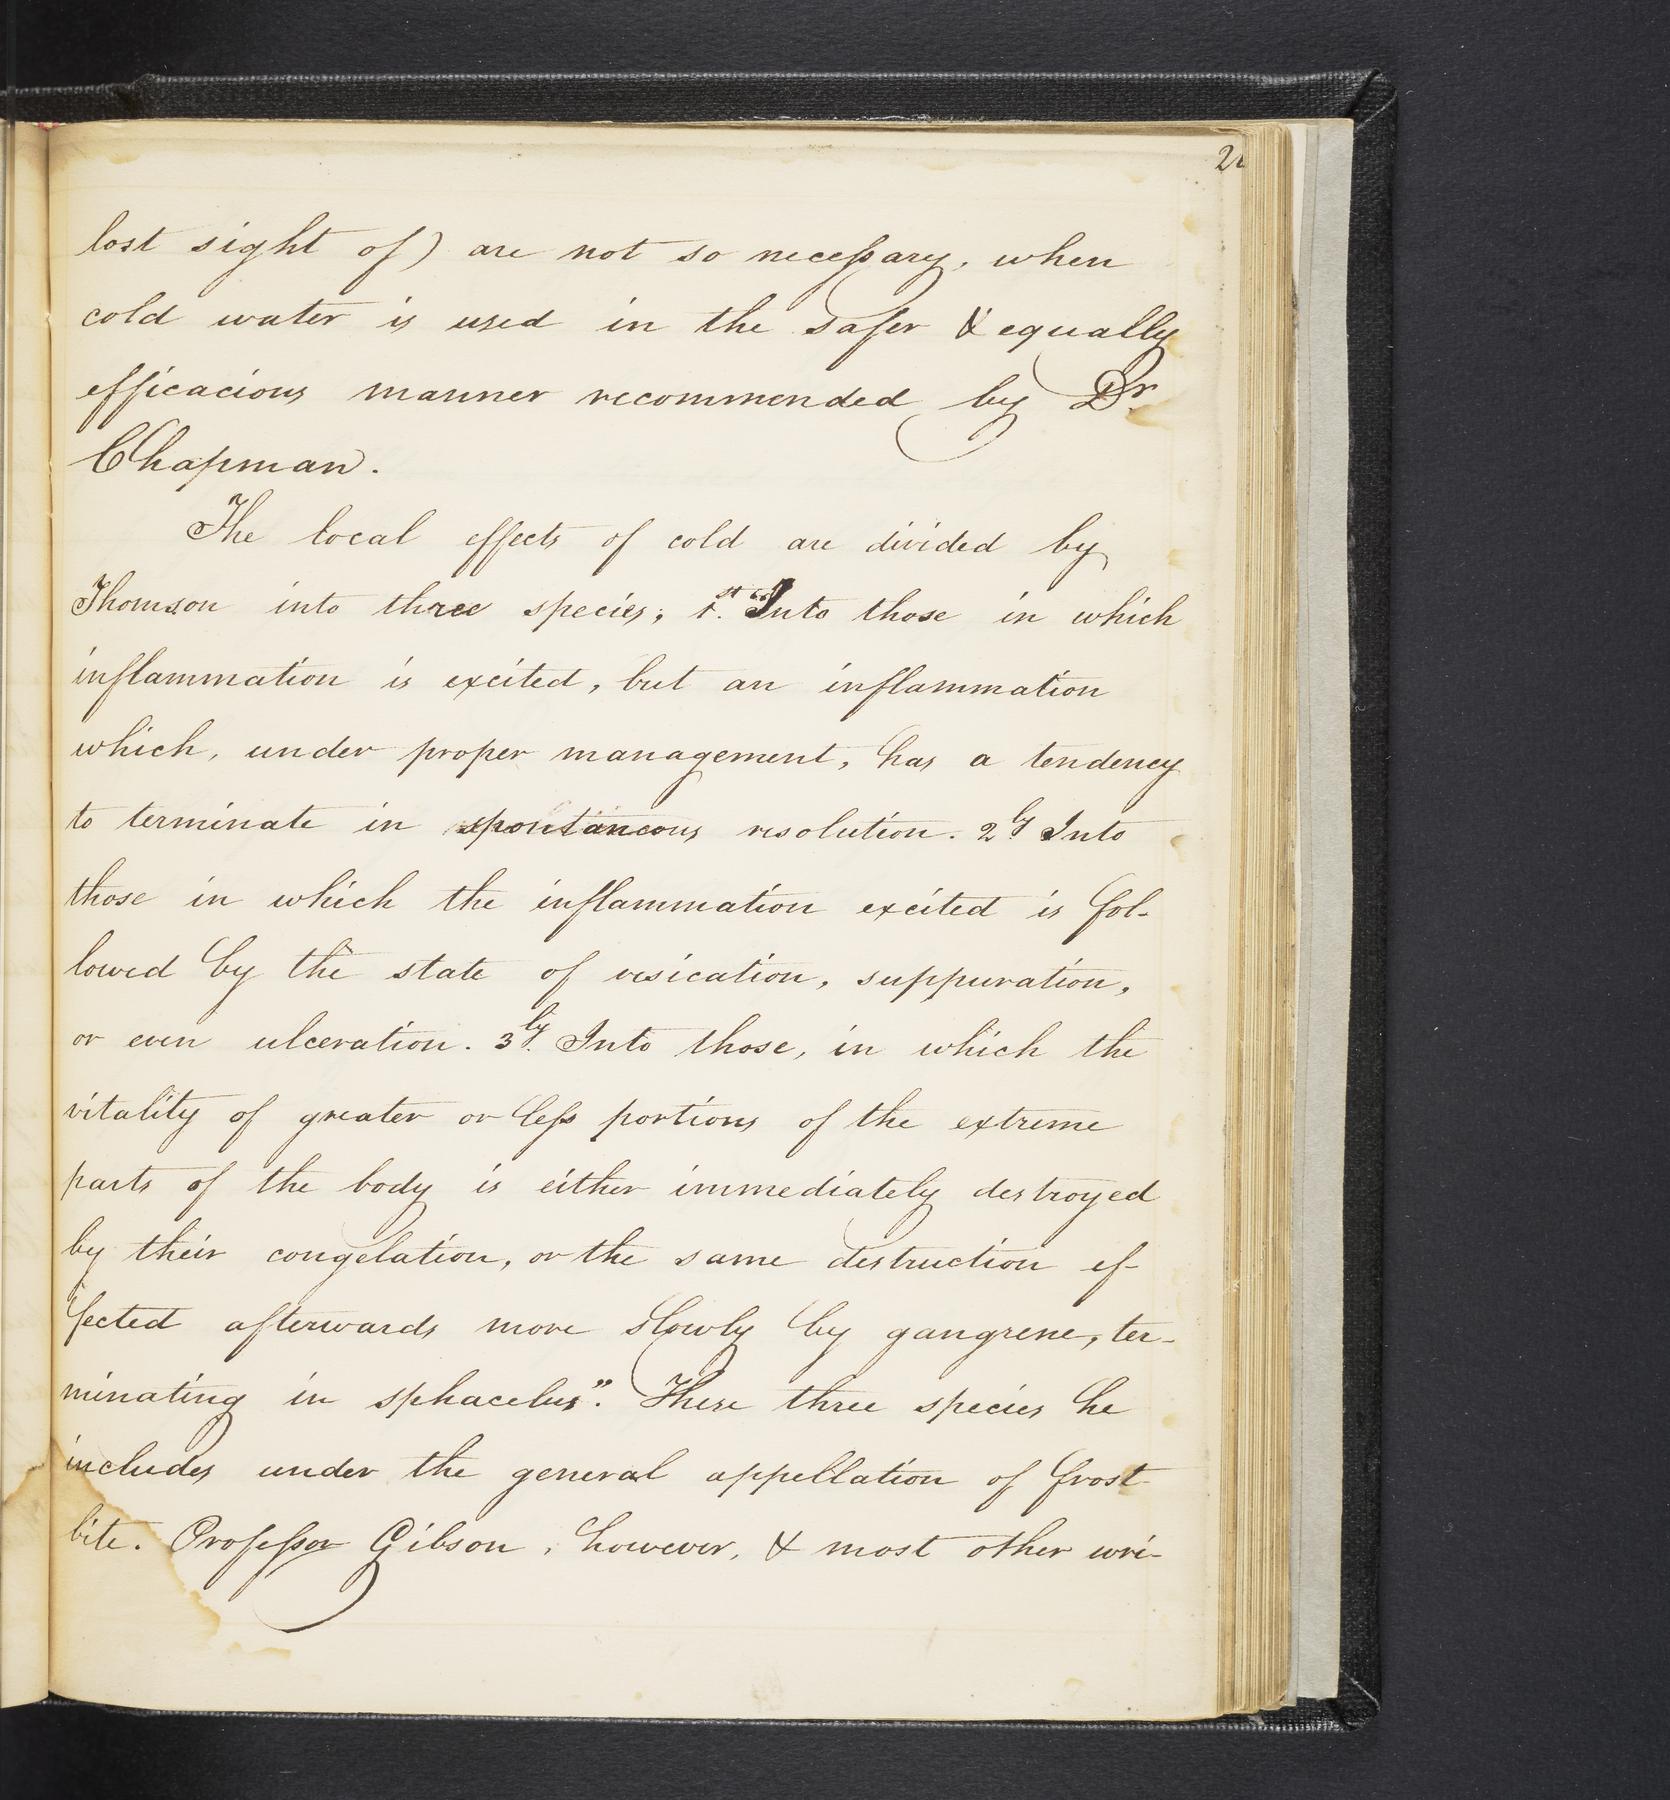 lost sight of) are not so necessary, when
cold water is used in the safer & equally
efficacious manner recommended by Dr.
Chapman.
The local effects of cold are divided by
Thomson into three species; 1.st "Into those in which
inflammation is excited, but an inflammation
which, under proper management, has a tendency
to terminate in spontaneous resolution. 2ly Into
those in which the inflammation excited is fol-
lowed by the state of vesication, suppuration,
or even ulceration. 3ly. Into those, in which the
vitality of greater or less portions of the extreme
parts of the body is either immediately destroyed
by their congelation, or the same destruction ef-
fected afterwards more slowly by gangrene, ter-
minating in sphacelus". These three species he
includes under the general appellation of frost
bite. Professor Gibson, however, & most other wri-